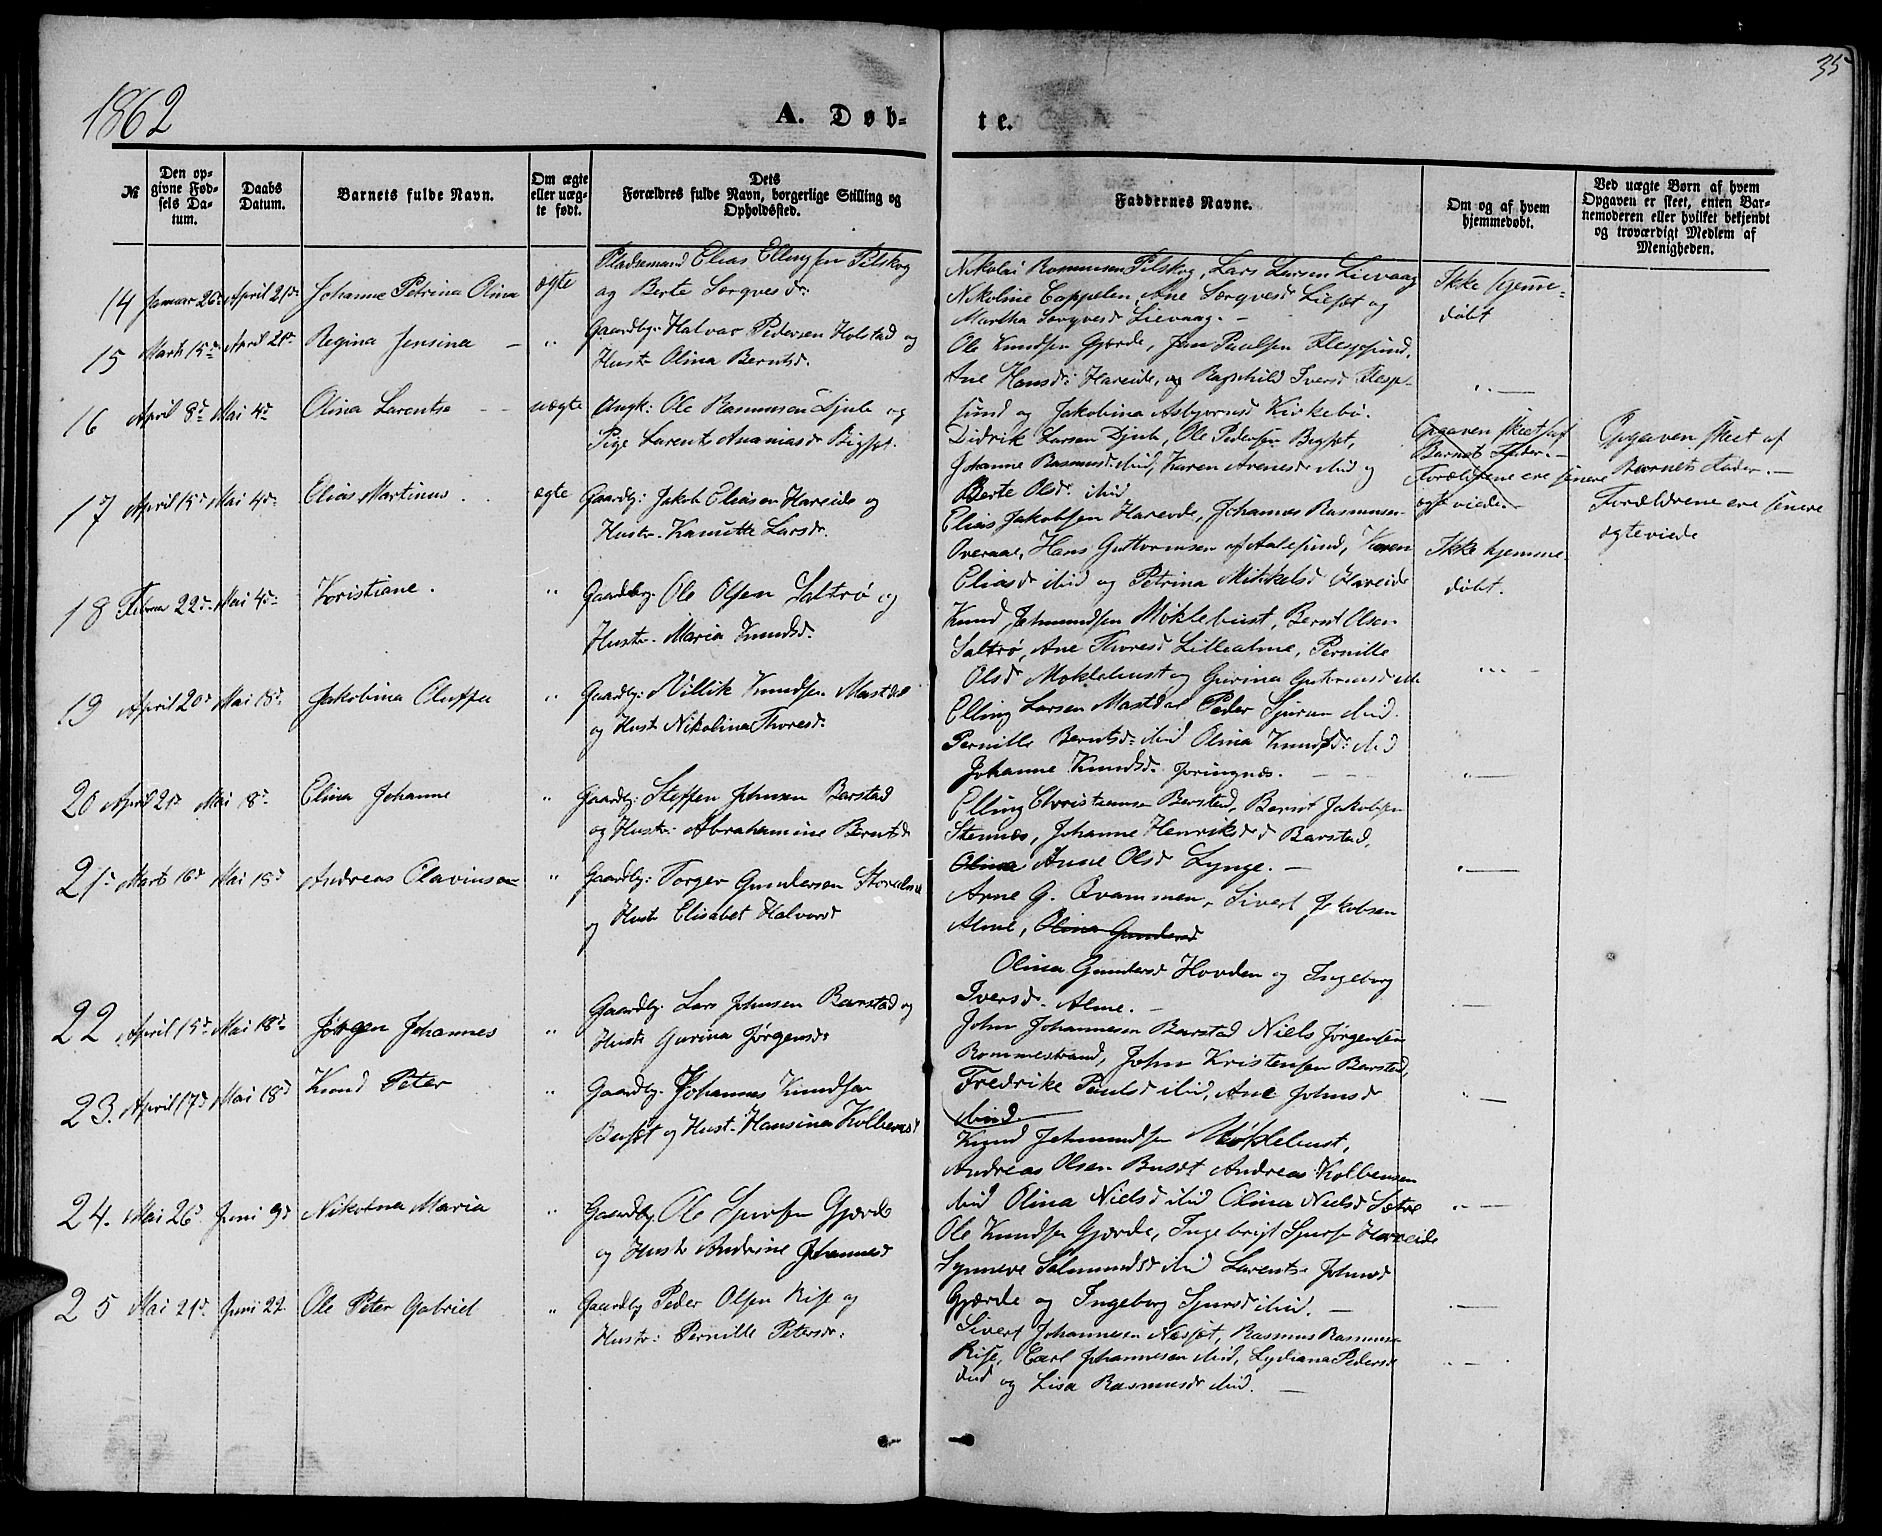 35
1862
A. Døb-
te.
№
Den op-
givne Fød-
sels Da-
tum.
Daabs
Datum.
Barnets fulde Navn.
Om ægte
eller uæg-
te født.
Dets
Forældres fulde Navn, borgerlige Stilling og
Opholdssted.
Faddernes Navne.
Om og af hvem
hjemmedøbt.
Ved uægte Børn af hvem
Opgaven er skeet, enten Bar-
nemoderen eller hvilket bekjendt
og troværdigt Medlem af
Menigheden.
14 Januar 26de April 21de Johanne Petrina Olina ægte
Pladsemand Elias Ellingsen Pilskog
og Berte Sergvesdr.
Nikolai Rasmussen Pilskog, Lars Larsen Lievaag
Nikoline Cappelen, Ane Sergvesd Liesæt og
Martha Sergvesd Lievaag. -
Ikke hjemme-
døbt
15 Marts 15de April 21de Regina Jensina - "
Gaardbr: Halvar Pedersen Holstad og
Hustr. Olina Berntsdr.
Ole Knudsen Gjerde, Jon Paulsen Flessund,
Ane Hansdr: Hareide, og Ragnhild Iversd Fless-
sund og Jakobina Asbjørnsd Kirkebø.
" —
16 April 8de Mai 4de Olina Larentse - - uægte
Ungk: Ole Rasmussen Djub og
Pige Larentse Ananiasdr Bigset.
Didrik Larsen Djub, Ole Pedersen Bigset,
Johanne Rasmusd: ibid, Karen Arnesdr ibid og
Berte Olsdr. ibid
Opgaven skeet af
Barnets Fader. -
Forældrene ere senere
ægteviede.
Opgaven skeet af
Barnets Fader. -
Forældrene ere senere
ægteviede
17 April 15de Mai 4de Elias Martinus . ægte
Gaardbr: Jakob Eliasen Hareide og
Hustr. Kanutte Larsdr.
Elias Jakobsen Hareide, Johannes Rasmussen
Overaae, Hans Guttormsen af Aalesund, Karen
Eliasdr ibid og Petrina Mikkelsd Hareide
Ikke hjemme
døbt.
18 Februar 22de Mai 4de Kristiane. "
Gaardbr: Ole Olsen Saltrø og
Hustr. Maria Knudsdr.
Knud Jetmundsen Møklebust, Bernt Olsen
Saltrø, Ane Thoresd Lillealme, Pernille
Olsd Møklebust og Gurina Guttormsd ib
" —
19 April 20de Mai 18de Jakobina Oluffa "
Gaardbr: Villik Knudsen Mastdal
og Hust Nikolina Thoresd.
Elling Larsen Mastdal Peder Sjursen ibid.
Pernille Berntsdr ibid Olina Knudsd: ibid
Johanne Knudsd. Joringnæs. - - -
" —
20 April 2de Mai 8de Elina Johanne "
Gaardbr: Steffen Johnsen Barstad
og Hustr. Abrahamine Berntsd
Elling Christiansen Barstad, Bernt Jakobsen
Stennæs, Johanne Henriksd Barstad,
Olina Anne Olsd Lynge. -
" —
21de Marts 16de Mai 18de Andreas Olavinson "
Gaardbr: Torger Gundersen Storealme
og Hust Elisabet Halvorsd
Arne G. Qvammen, Sivert Jakobsen
Alme, Olina Gundersd
Olina Gundersd Hovden og Ingeborg
Iversdr. Alme. -
22 April 15de Mai 18de Jørgen Johannes "
Gaardbr: Lars Johnsen Barstad og
Hustr Gurina Jørgensdr
John Johannesen Barstad Niels Jørgensen
Rommestrand, John Kristensen Barstad,
Fredrike Paulsd ibid, Ane Johnsd
ibid
" —
23. April 17de Mai 18de Knud Peter "
Gaardbr. Johannes Knudsen
Busæt og Hust. Hansina Kolbensd
Knud Jetmundsen Møklebust,
Andreas Olsen Busæt Andreas Kolbensen
ibid Olina Nielsd ibid Olina Nielsd Sætre
" —
24. Mai 26de Juni 9de Nikolina Maria "
Gaardbr. Ole Sjursen Gjerde
og Hustr Andrine Johannesd
Ole Knudsen Gjerde, Ingebrigt Sjursen Hareide
Synneve Salmundsd ibid Larentse Johnsd
Gjerde og Ingeborg Sjursd ibid. -
" —
25 Mai 21de Juni 22 Ole Peter Gabriel "
Gaardbr Peder Olsen Rise og
Hustr: Pernille Petersdr:
Sivert Johannesen Nesset, Rasmus Rasmussen
Rise, Carl Johannesen ibid, Lydiana Pedersd
ibid og Lisa Rasmusdr ibid. -
" —